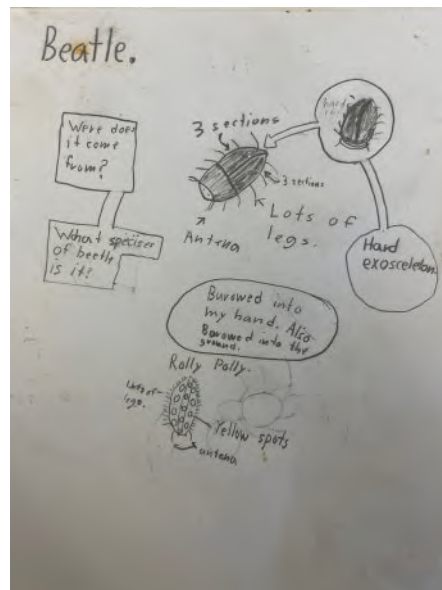 Beatle.
Were does
it come
from?
What speciser
of beetle
is it?
3 sections
3 sections
Antena
Lots of
legs.
Hard
exosceleton.
Burowed into
my hand. Also
Borowed into the
ground.
Rolly Polly.
Lots of
legs.
Yellow spots
antena